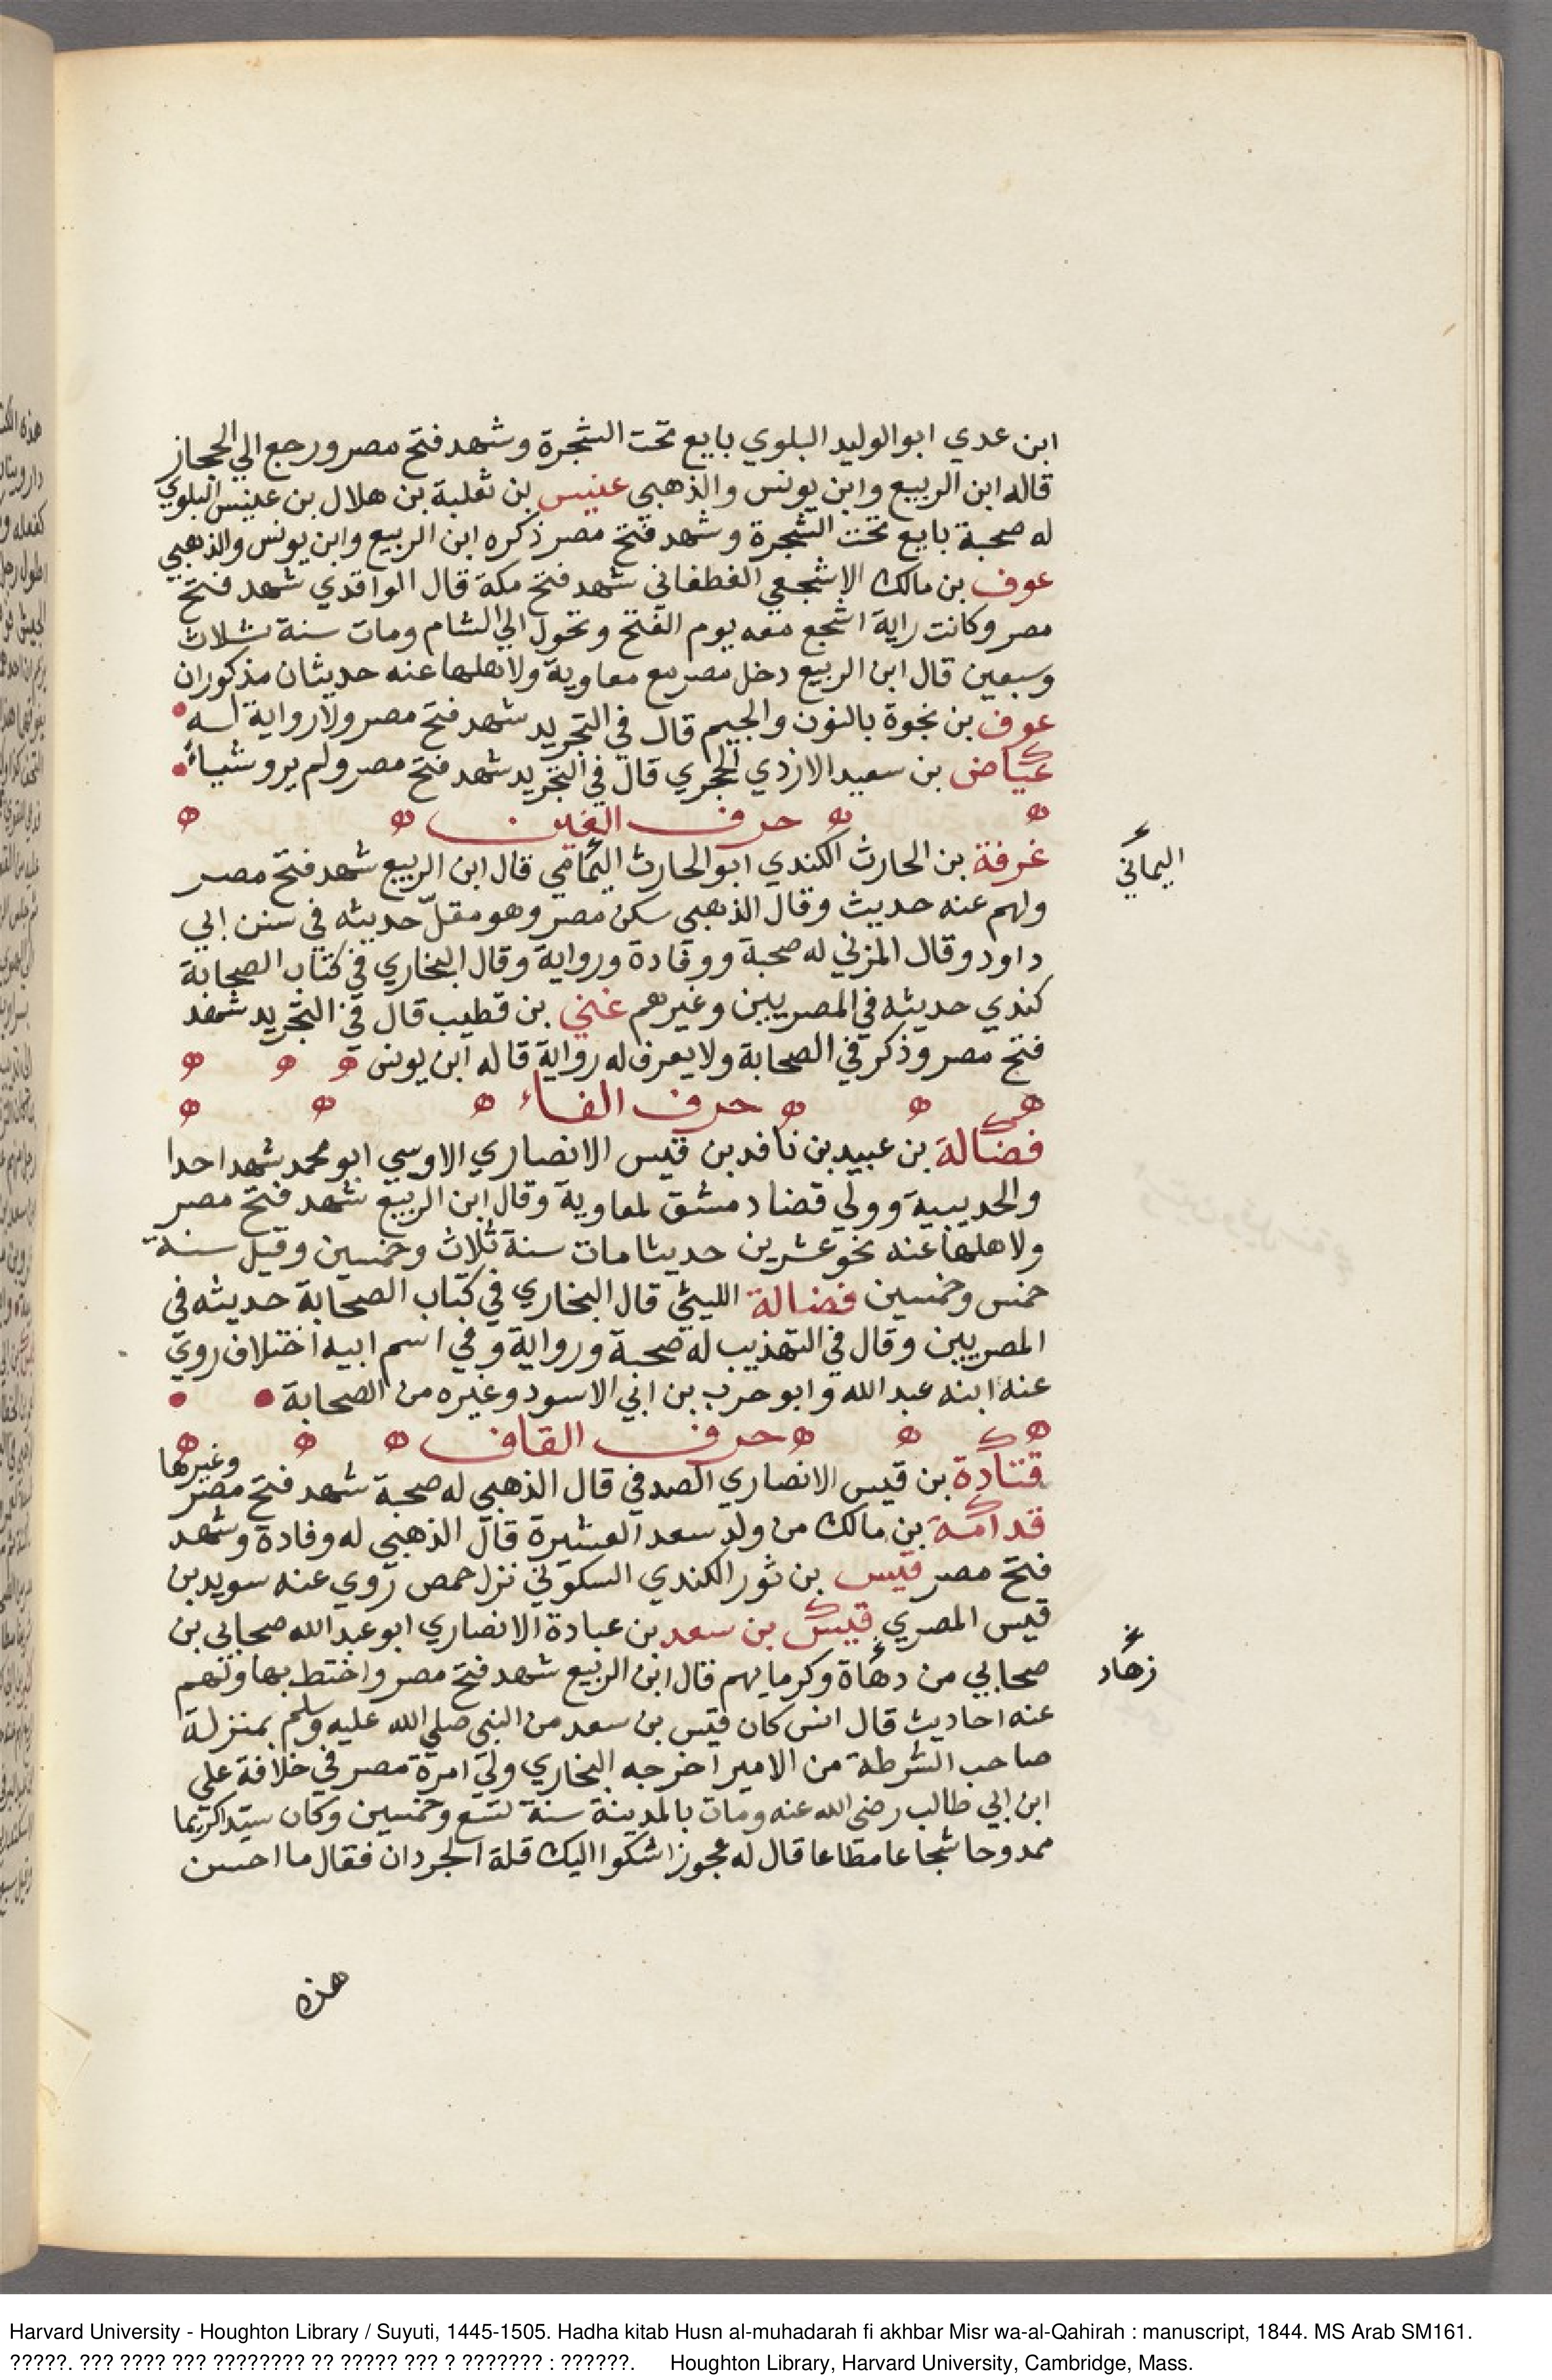 ابن عدي ابو الوليد البلوي بايع تحت الشجرة وشهد فتح مصر ورجع الي الحجاز
قاله ابن الربيع وابن يونس والذهبي عنبس بن ثعلبة بن هلال بن عنبس البلوي
له صحبة بايع تحت الشجرة وشهد فتح مصر ذكره ابن الربيع وابن يونس والذهبي
عوف بن مالك الاشجعي الغطفاني شهد فتح مكة قال الواقدي شهد فتح
مصر وكانت راية اشجع معه يوم الفتح وتحول الي الشام ومات سنة ثلاث
وسبعين قال ابن الربيع دخل مصر مع معاوية ولاهلها عنه حديثان مذكوران
عوف بن نجوة بالنون والجيم قال في التجريد شهد فتح مصر ولا رواية له
عياض بن سعيد الازدي الحجري قال في التجريد شهد فتح مصر ولم يرو شيأ
حرف الغين
غرفة بن الحارث الكندي ابو الحارث اليمامي قال ابن الربيع شهد فتح مصر
اليماني
ولهم عنه حديث وقال الذهبي سكن مصر وهو مقلّ حديثه في سنن ابي
داود وقال المزني له صحبة ووفادة ورواية وقال البخاري في كتاب الصحابة
كندي حديثه في المصريين وغيرهم غني بن قطيب قال في التجريد شهد
فتح مصر وذكر في الصحابة ولا يعرف له رواية قاله ابن يونس
حرف الفاء
فضالة بن عبيد بن نافد بن قيس الانصاري الاوسي ابو محمد شهد احدا
والحديبية وولي قضا دمشق لمعاوية وقال ابن الربيع شهد فتح مصر
ولاهلها عنه نحو عشرين حديثا مات سنة ثلاث وخمسين وقيل سنة
خمس وخمسين فضالة الليثي قال البخاري في كتاب الصحابة حديثه في
المصريين وقال في التهذيب له صحبة ورواية وفي اسم ابيه اختلاف روي
عنه ابنه عبد الله وابو حرب بن ابي الاسود وغيره من الصحابة
حرف القاف
قتادة بن قيس الانصاري الصدفي قال الذهبي له صحبة شهد فتح مصر وغيرها
قدامة بن مالك من ولد سعد العشيرة قال الذهبي له وفادة وشهد
فتح مصر قيس بن ثور الكندي السكوني نزل حمص روي عنه سويد بن
قيس المصري قيس بن سعد بن عبادة الانصاري ابو عبد الله صحابي بن
صحابي من دهاة وكرمايهم قال ابن الربيع شهد فتح مصر واختط بها ولهم
زهاد
عنه احاديث قال انس كان قيس بن سعد من النبي صلي الله عليه وسلم بمنزلة
صاحب الشرطة من الامير اخرجه البخاري ولي امرة مصر في خلافة علي
ابن ابي طالب رضي الله عنه ومات بالمدينة سنة تسع وخمسين وكان سيدا كريما
ممدوحا شجاعا مطاعا قال له عجوز اشكوا اليك قلة الجردان فقال ما احسن
هذه
Harvard University - Houghton Library / Suyuti, 1445-1505. Hadha kitab Husn al-muhadarah fi akhbar Misr wa-al-Qahirah : manuscript, 1844. MS Arab SM161.
?????. ??? ???? ??? ???????? ?? ????? ??? ? ??????? : ??????. Houghton Library, Harvard University, Cambridge, Mass.